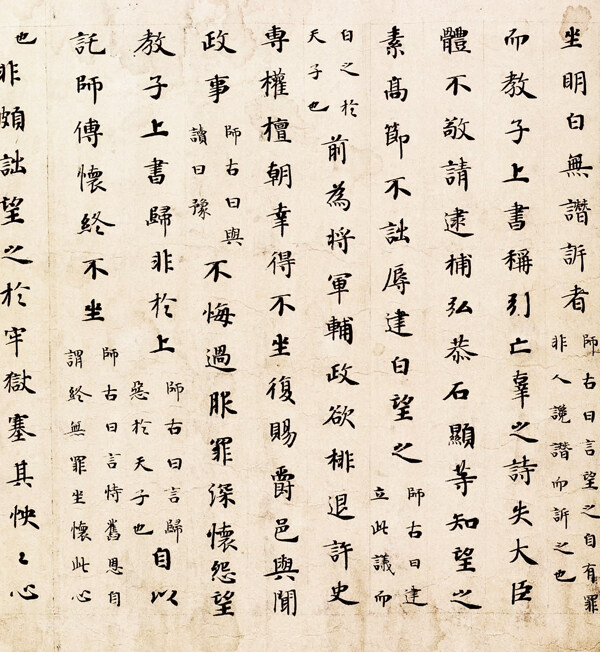 坐明白無譖訴者師古曰言望之自有罪非人讒譖而訴之也
而教子上書稱引亡辜之詩失大臣
體不敬請逮捕弘恭石顯等知望之
素高節不詘辱建白望之師古曰建立此議而
白之於天子也前為將軍輔政欲排退許史
專權擅朝幸得不坐復賜爵邑與聞
政事師古曰與讀曰豫不悔過服罪深懷怨望
教子上書歸非於上師古曰言歸惡於天子也自以
託師傅懷終不坐師古曰言恃舊恩自謂終無罪坐懷此心
也非頗詘望之於牢獄塞其怏〻心